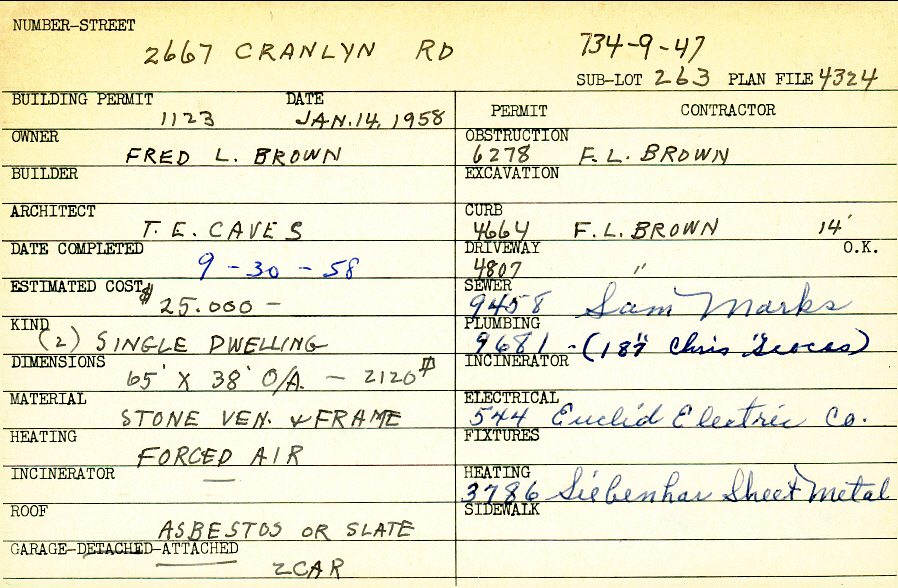 NUMBER-STREET
2667 CRANLYN RD 734-9-47
SUB-LOT 263 PLAN FILE 4324
BUILDING PERMIT DATE
1123 JAN. 14, 1958
OWNER
FRED L. BROWN
BUILDER
ARCHITECT
T. E. CAVES
DATE COMPLETED
9-30-58
ESTIMATED COST
$25.000 —
KIND
(2) SINGLE DWELLING
DIMENSIONS
65' X 38' O/A. — 2120#
MATERIAL
STONE VEN. & FRAME
HEATING
FORCED AIR
INCINERATOR
—
ROOF
ASBESTOS OR SLATE
GARAGE-DETACHED-ATTACHED
2 CAR
PERMIT CONTRACTOR
OBSTRUCTION
6278 F.L. BROWN
EXCAVATION
CURB
4664 F.L. BROWN 14'
DRIVEWAY O.K.
4807 "
SEWER
9458 Sam Marks
PLUMBING
9681 - (187 Chris
INCINERATOR
ELECTRICAL
544 Euclid Electric Co.
FIXTURES
HEATING
3786 Siebenhar Sheet Metal
SIDEWALK